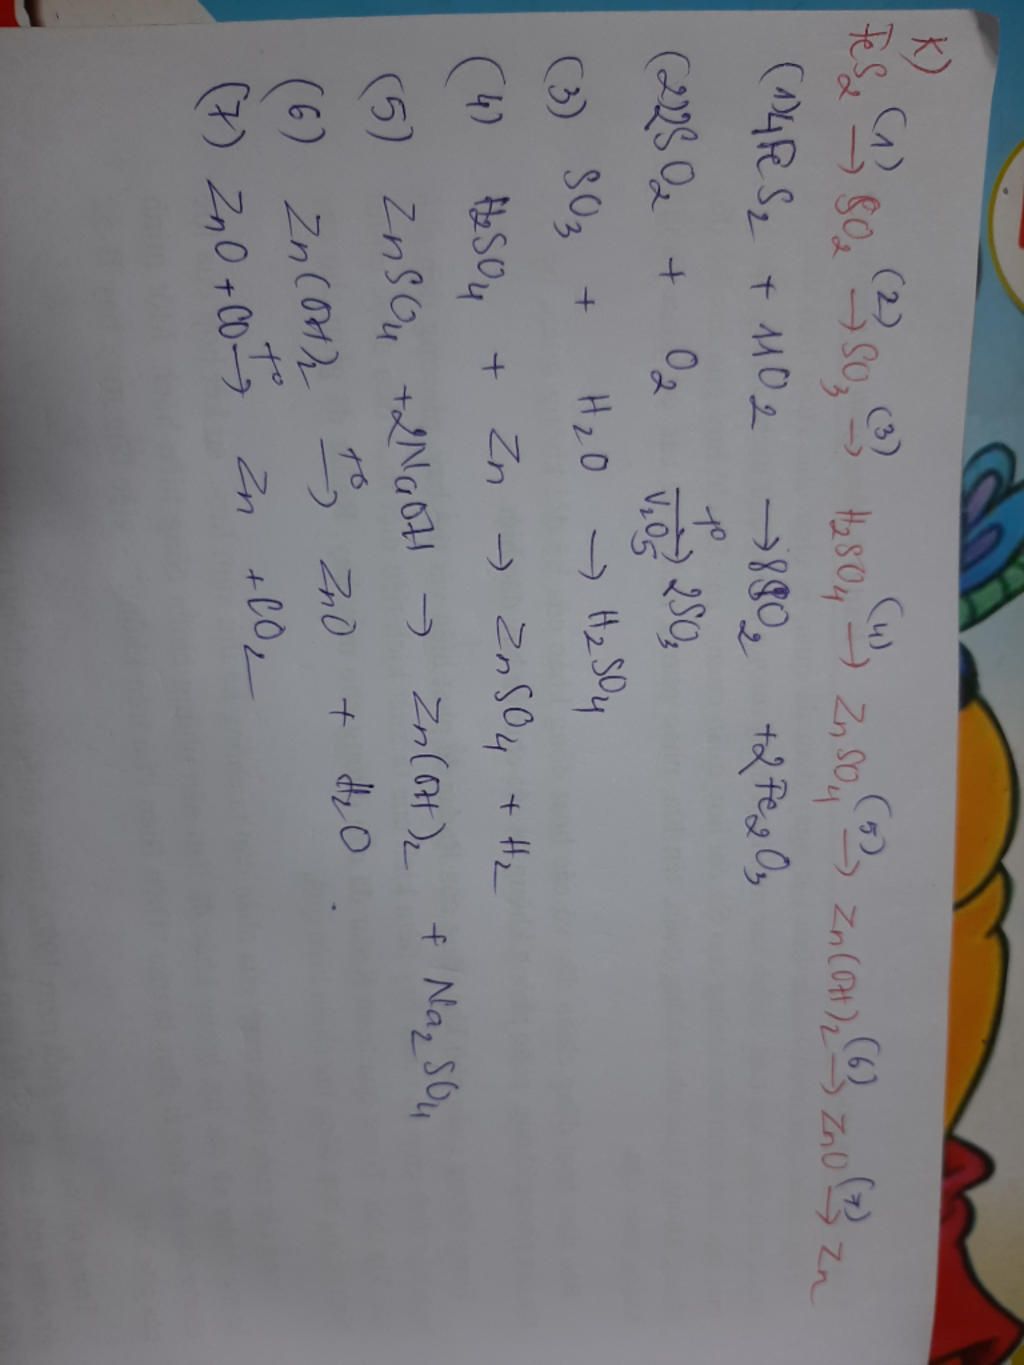 K)
FeS₂ (1)→ SO₂ (2)→ SO₃ (3)→ H₂SO₄ (4)→ ZnSO₄ (5)→ Zn(OH)₂ (6)→ ZnO (7)→ Zn
(1) 4FeS₂ + 11O₂ → 8SO₂ + 2Fe₂O₃
(2) 2SO₂ + O₂ t°→ V₂O₅ 2SO₃
(3) SO₃ + H₂O → H₂SO₄
(4) H₂SO₄ + Zn → ZnSO₄ + H₂
(5) ZnSO₄ + 2NaOH → Zn(OH)₂ + Na₂SO₄
(6) Zn(OH)₂ t°→ ZnO + H₂O
(7) ZnO + CO t°→ Zn + CO₂